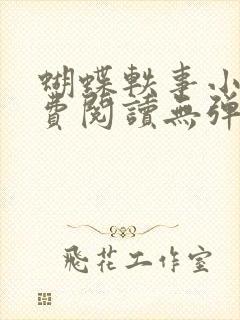 蝴蝶軼事小
費閱讀無彈
飛花工作室